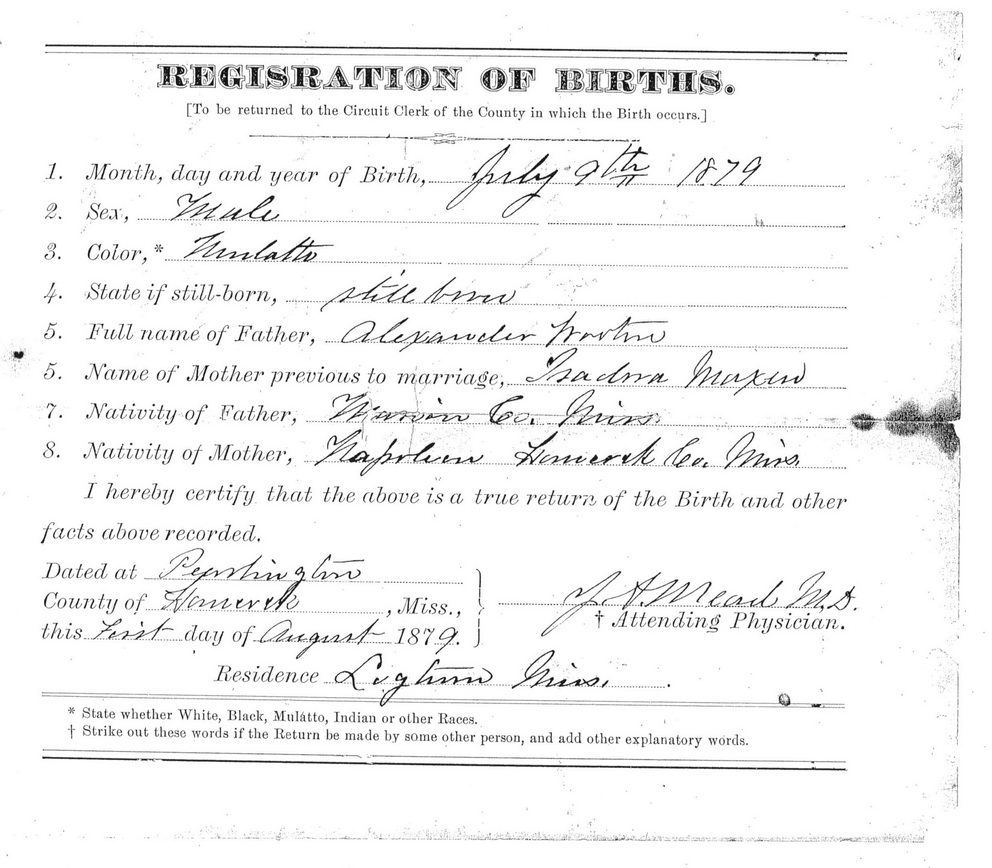 REGISRATION OF BIRTHS.
[To be returned to the Circuit Clerk of the County in which the Birth occurs.]
1. Month, day and year of Birth, July 9th 1879
2. Sex, Male
3. Color,* Mulatto
4. State if still-born, still born
5. Full name of Father, Alexander
5. Name of Mother previous to marriage, Isadora
7. Nativity of Father, Marion Co. Miss.
8. Nativity of Mother, Napoleon Hancock Co. Miss.
I hereby certify that the above is a true return of the Birth and other
facts above recorded.
Dated at Pearlington
County of Hancock, Miss.,
this First day of August 1879.
J. A. Mead M.D.
† Attending Physician.
Residence Logtown Miss.
* State whether White, Black, Mulatto, Indian or other Races.
† Strike out these words if the Return be made by some other person, and add other explanatory words.